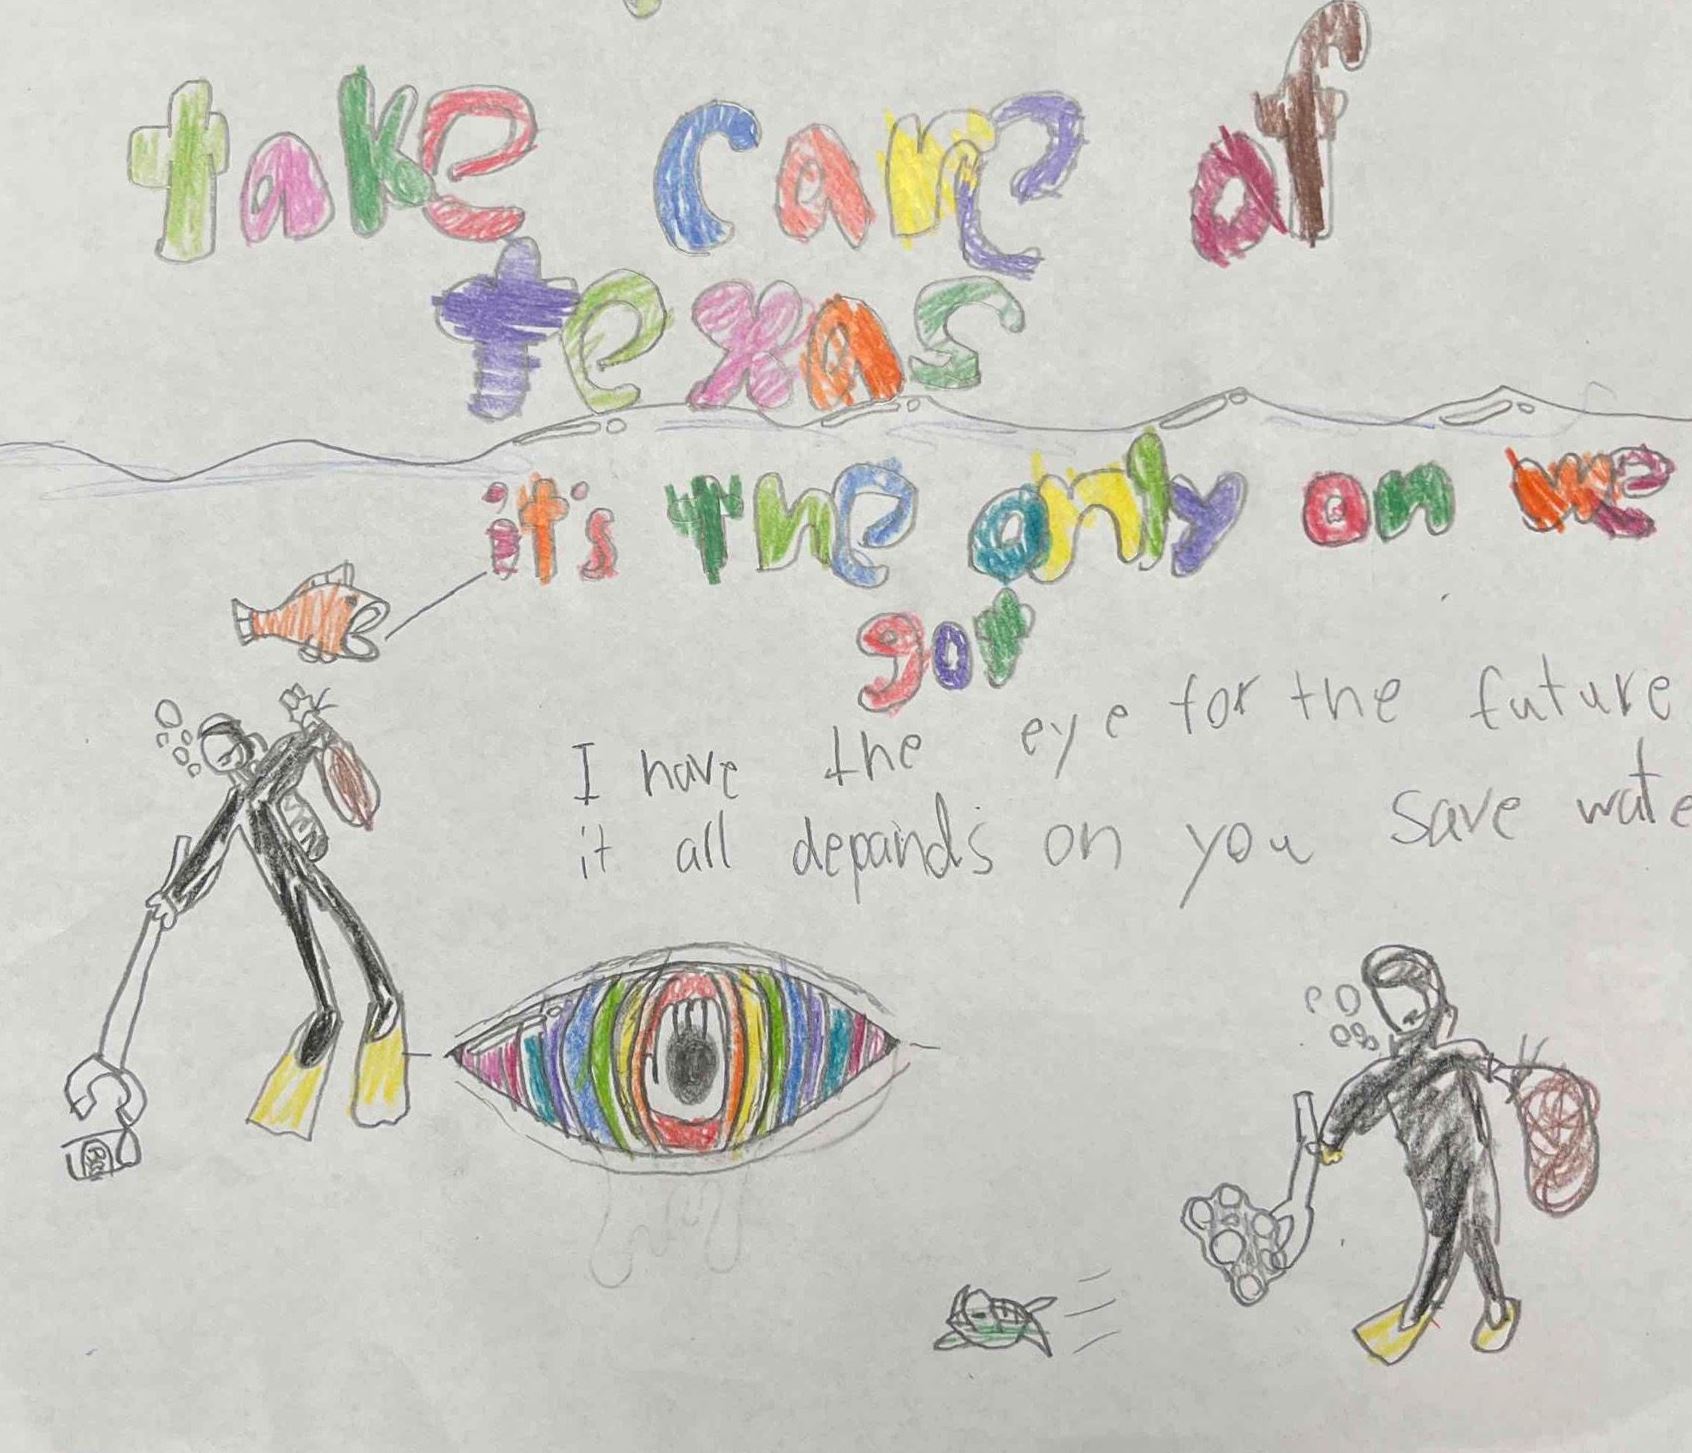 take care of
texas
it's the only on we
got
I have the eye for the future
it all depands on you save wate